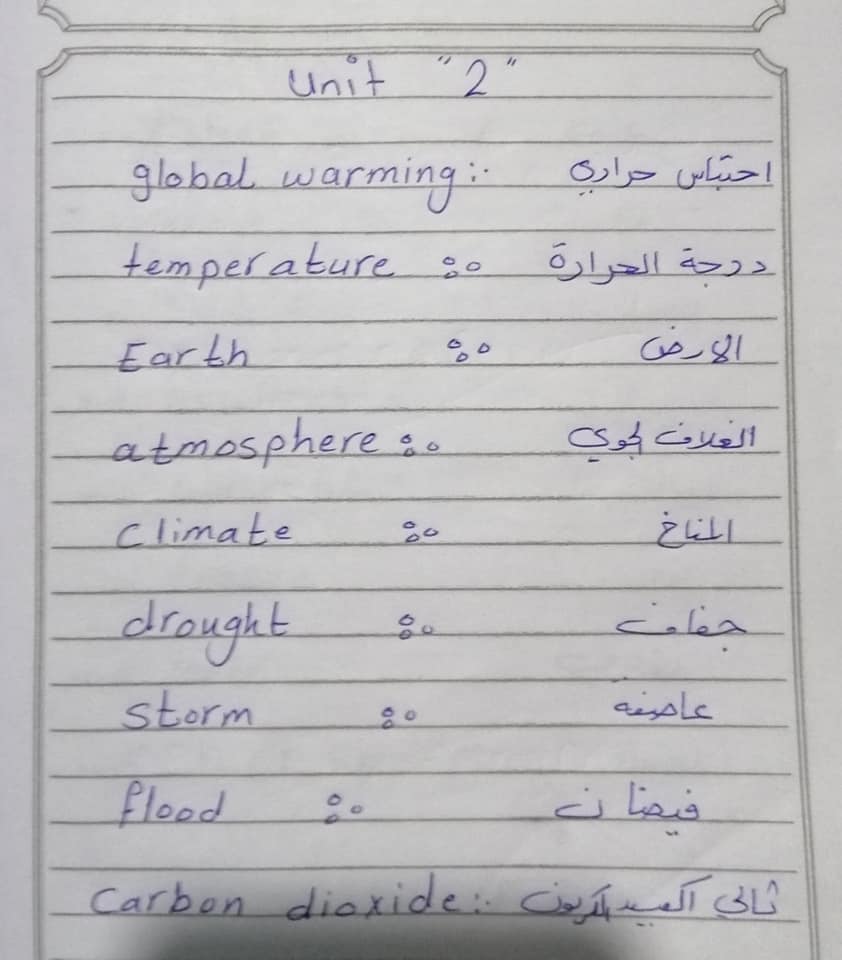 unit "2"
global warming:- احتباس حراري
temperature :- درجة الحرارة
Earth :- الارض
atmosphere :- الغلاف الجوي
Climate :- المناخ
drought :- جفاف
storm :- عاصفه
flood :- فيضان
Carbon dioxide:- ثاني اكسيد الكربون